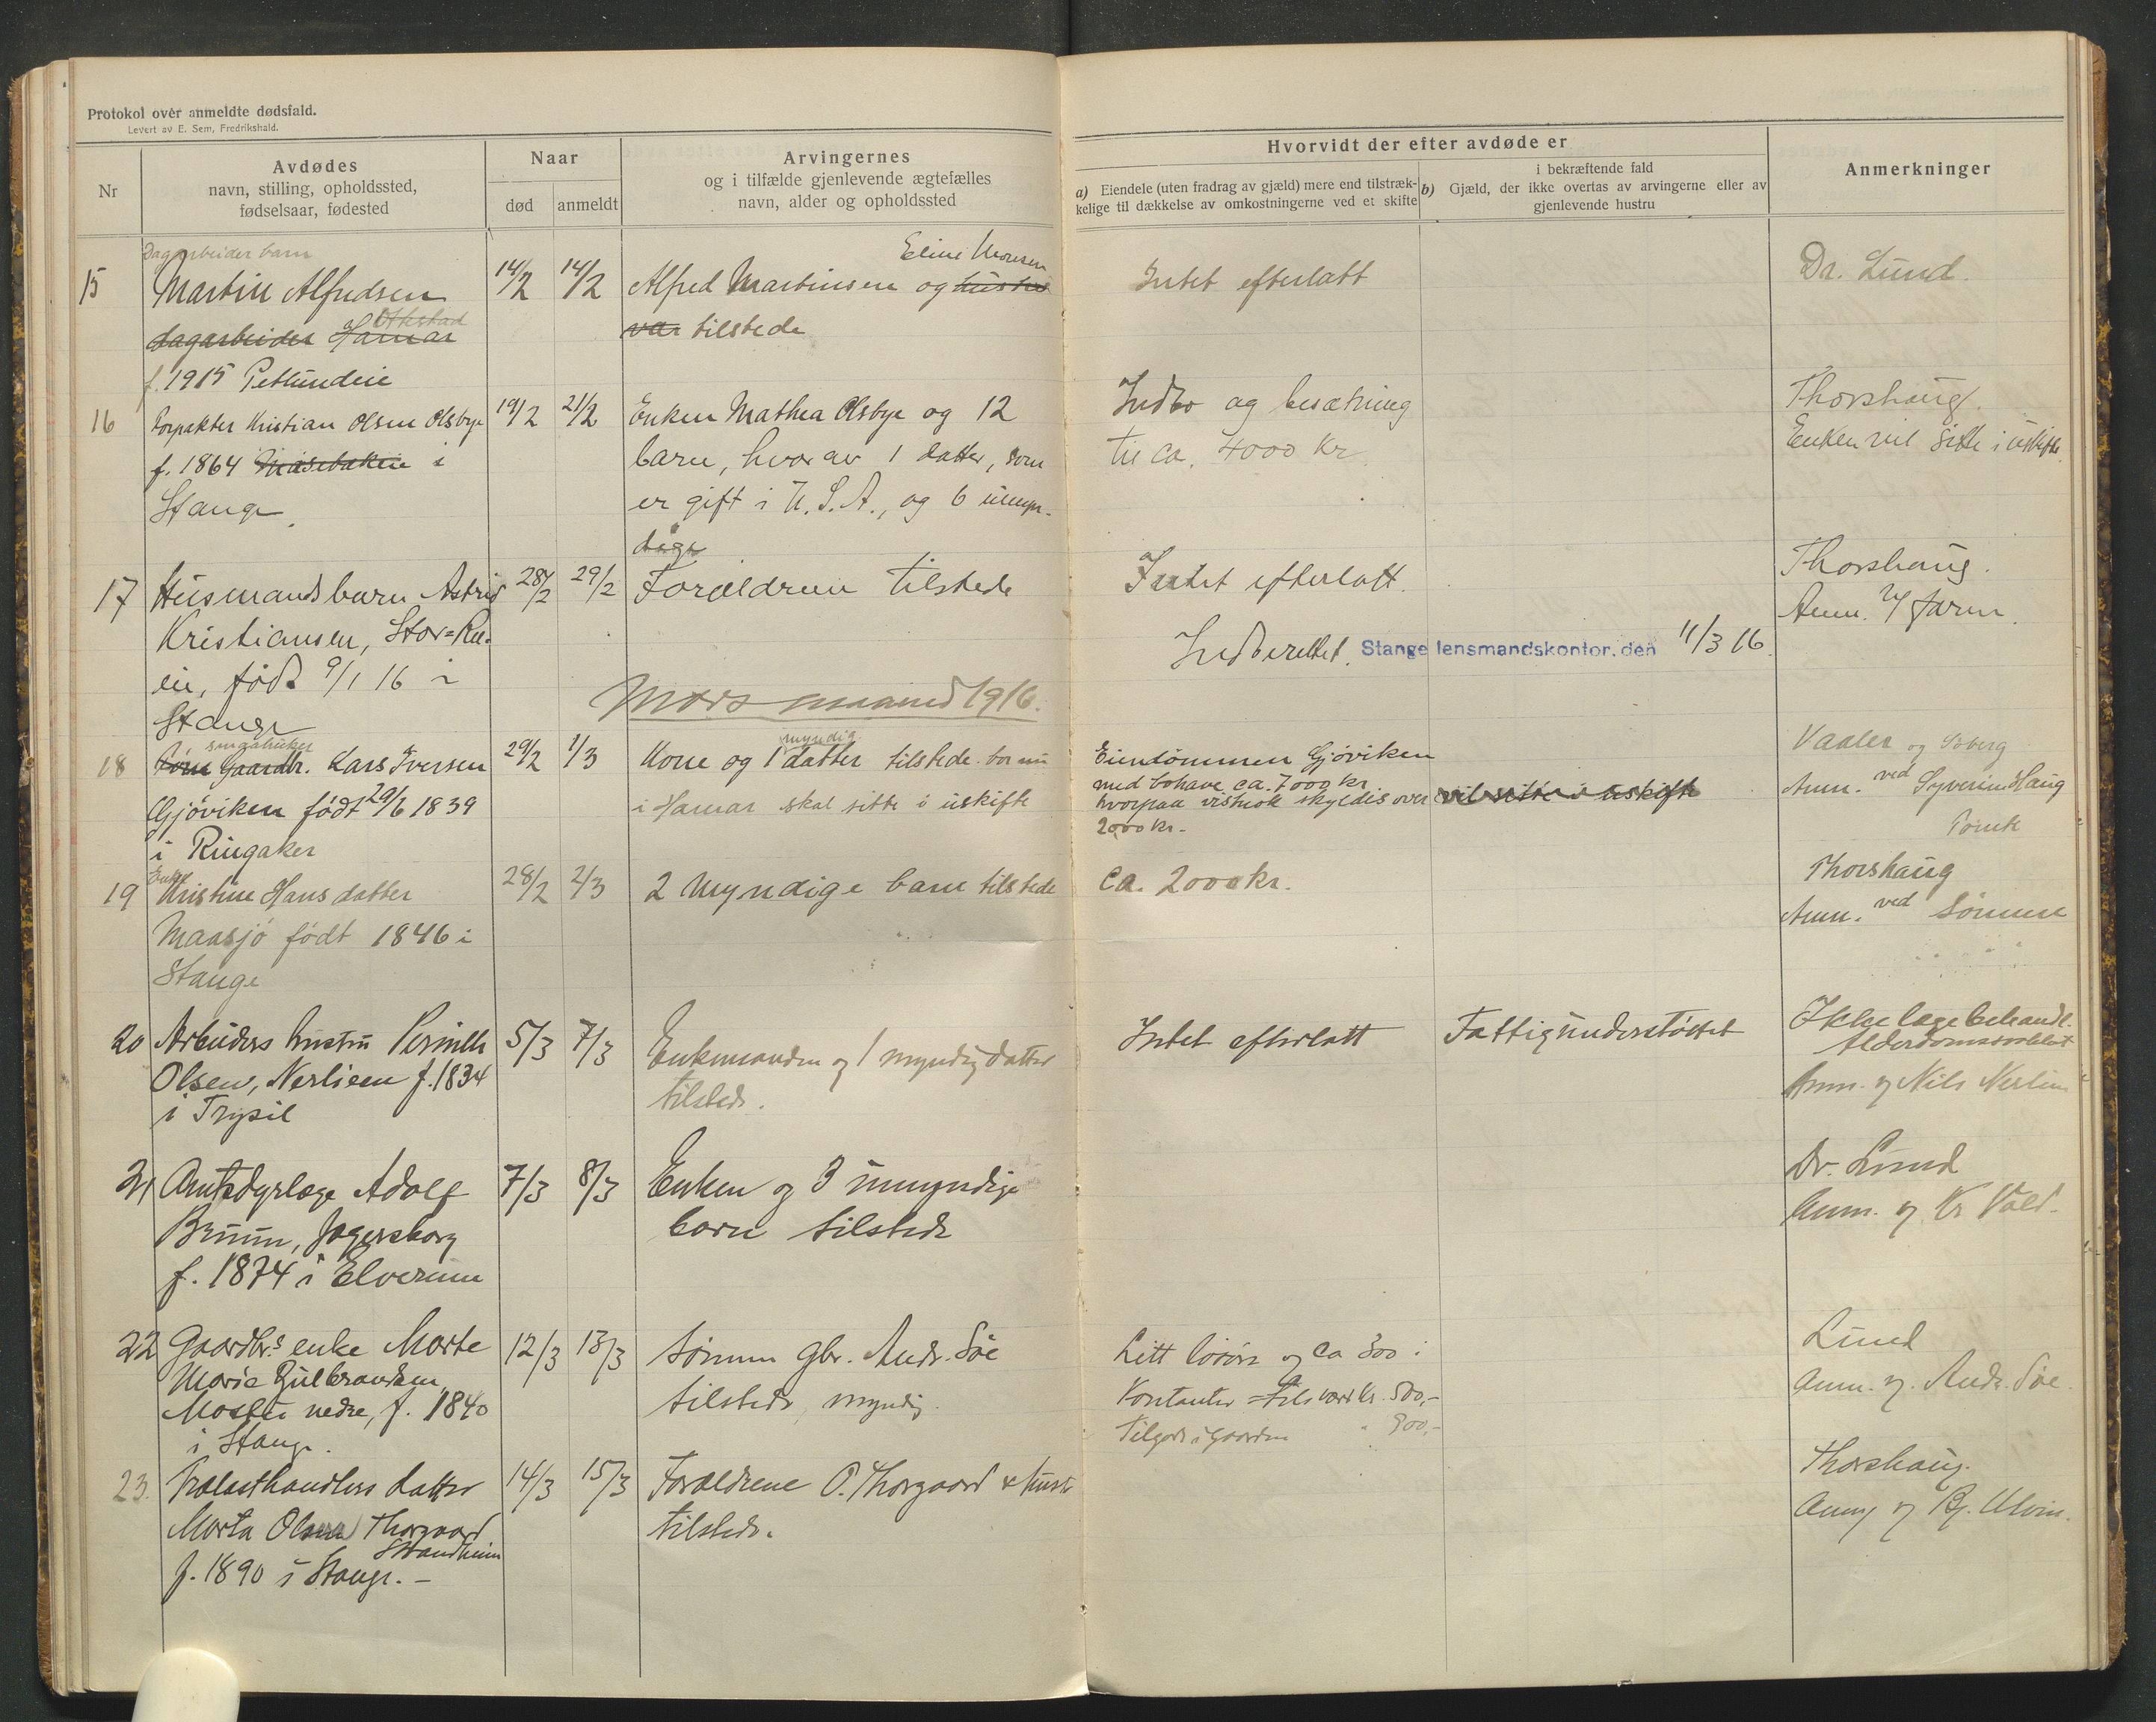 Protokol over anmeldte dødsfald.
Levert av E. Sem, Fredrikshald.
Nr
Avdødes
navn, stilling, opholdssted,
fødselsaar, fødested
Naar
død
anmeldt
Arvingernes
og i tilfælde gjenlevende ægtefælles
navn, alder og opholdssted
Hvorvidt der efter avdøde er
a) Eiendele (uten fradrag av gjæld) mere end tilstræk-
kelige til dækkelse av omkostningerne ved et skifte
i bekræftende fald
b) Gjæld, der ikke overtas av arvingerne eller av
gjenlevende hustru
Anmerkninger
15
Dagarbeider barn
Martin Alfredsen
dagarbeider Hamar
f. 1915
14/2
14/2
Alfred Martinsen og hustru
Eline
var tilstede
Intet efterlatt
Dr. Lund.
16
Forpakter Kristian Olsen Olsbye
f. 1864 i
Stange
19/2
21/2
Enken Mathea Olsbye og 12
barn, hvorav 1 datter, som
er gift i U.S.A., og 6 umyn-
dige
Indbo og besætning
til ca. 4000 kr
Thorshaug.
Enken vil sitte i uskifte
17
Husmandsbarn Astrid
Kristiansen,
født 9/1 16 i
Stange
28/2
29/2
Forældrene tilstede
Intet efterlatt.
Thorshaug.
Anm. v/ faren.
Indberettet. Stange lensmandskontor, den 11/3 16.
Mars maaned 1916.
18
smaabruker
Gaardbr. Lars Iversen
Gjøviken født 29/6 1839
i Ringsaker
29/2
1/3
myndig
Kone og 1 datter tilstede bor nu
i Hamar skal sitte i uskifte
Eiendommen Gjøviken
med bohave ca. 7000 kr
hvorpaa vistnok skyldes over
2000 kr.
vil sitte i uskifte
Vaaler og
Anm. ved Syverin Haug
19
Enke
Kristine Hansdatter
Maasjø født 1846 i
Stange
28/2
2/3
2 myndige barn tilstede
ca. 2000 kr.
Thorshaug
Anm. ved sønnen
20
Arbeiders hustru Pernille
Olsen, Nerlieen f. 1834
i Trysil
5/3
7/3
Enkemanden og 1 myndig datter
tilstede.
Intet efterlatt
Fattigunderstøttet
Ikke lægebehandl.
Anm. v/ Nils Nerlien
21
Amtsdyrlæge Adolf
Bruun, Jægersborg
f. 1874 i Elverum
7/3
8/3
Enken og 3 umyndige
barn tilstede
Dr. Lund
Anm. v/ Kr Vold.
22
Gaardbr.s enke Marte
Marie Gulbrandsen
nedre, f. 1840
i Stange.
12/3
13/3
Sønnen gbr. Andr. Søe
tilstede, myndig.
Litt løsøre og ca 300 i
Kontanter = tils værd kr. 500,-
Tilgode i Gaarden " 900,-
Lund
Anm. v. Andr. Søe.
23.
Trælasthandlers datter
Marta Olsen Thorgaard
Strandheim
f. 1890 i Stange. -
14/3
15/3
Forældrene O. Thorgaard & hustr
tilstede.
Thorshaug.